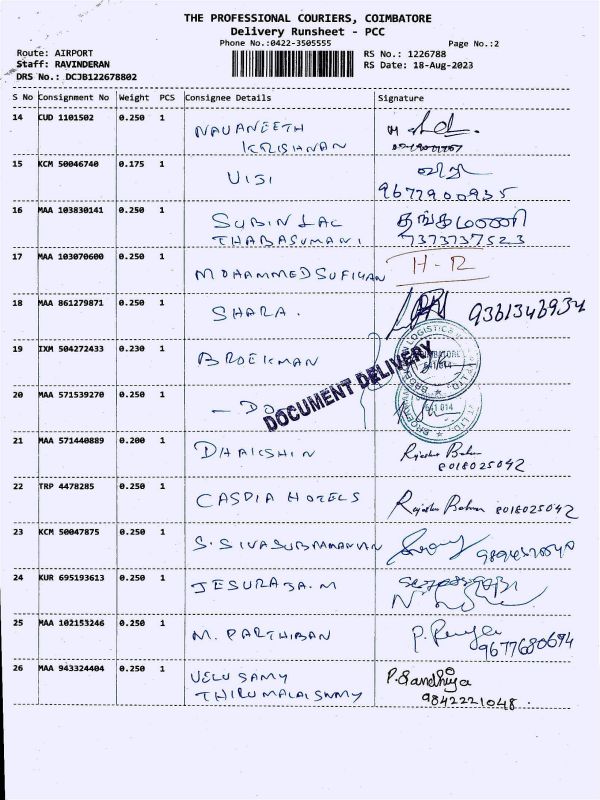 THE PROFESSIONAL COURIERS, COIMBATORE
Delivery Runsheet - PCC
Phone No.:0422-3505555
Page No.:2
Route: AIRPORT
RS No.: 1226788
Staff: RAVINDERAN
RS Date: 18-Aug-2023
DRS No.: DCJB122678802
S No Consignment No Weight PCS Consignee Details Signature
14 CUD 1101502 0.250 1
NAVANEETH
KRISHNAN
15 KCM 50046740 0.175 1
VISI
9677900935
16 MAA 103830141 0.250 1
SUBIN LAC தங்கமணி
THABASUMANI 7373737523
17 MAA 103070600 0.250 1
MOHAMMED SUFIYAN H-R
18 MAA 861279871 0.250 1
SHARA. 9361346934
19 IXM 504272433 0.230 1
BROEKMAN
COIMBATORE
641 014
DOCUMENT DELIVERY
20 MAA 571539270 0.250 1
- DO
641 014
21 MAA 571440889 0.200 1
DHAKSHIN
8018025042
22 TRP 4478285 0.250 1
CASPIA HOTELS 8018025042
23 KCM 50047875 0.250 1
S. SIVASUBRAMANIAN
24 KUR 695193613 0.250 1
JESURAJA. M
25 MAA 102153246 0.250 1
M. PARTHIBAN
9677680694
26 MAA 943324404 0.250 1
VELUSAMY P. Sandhiya
THIRUMALAISWAMY 9842221048